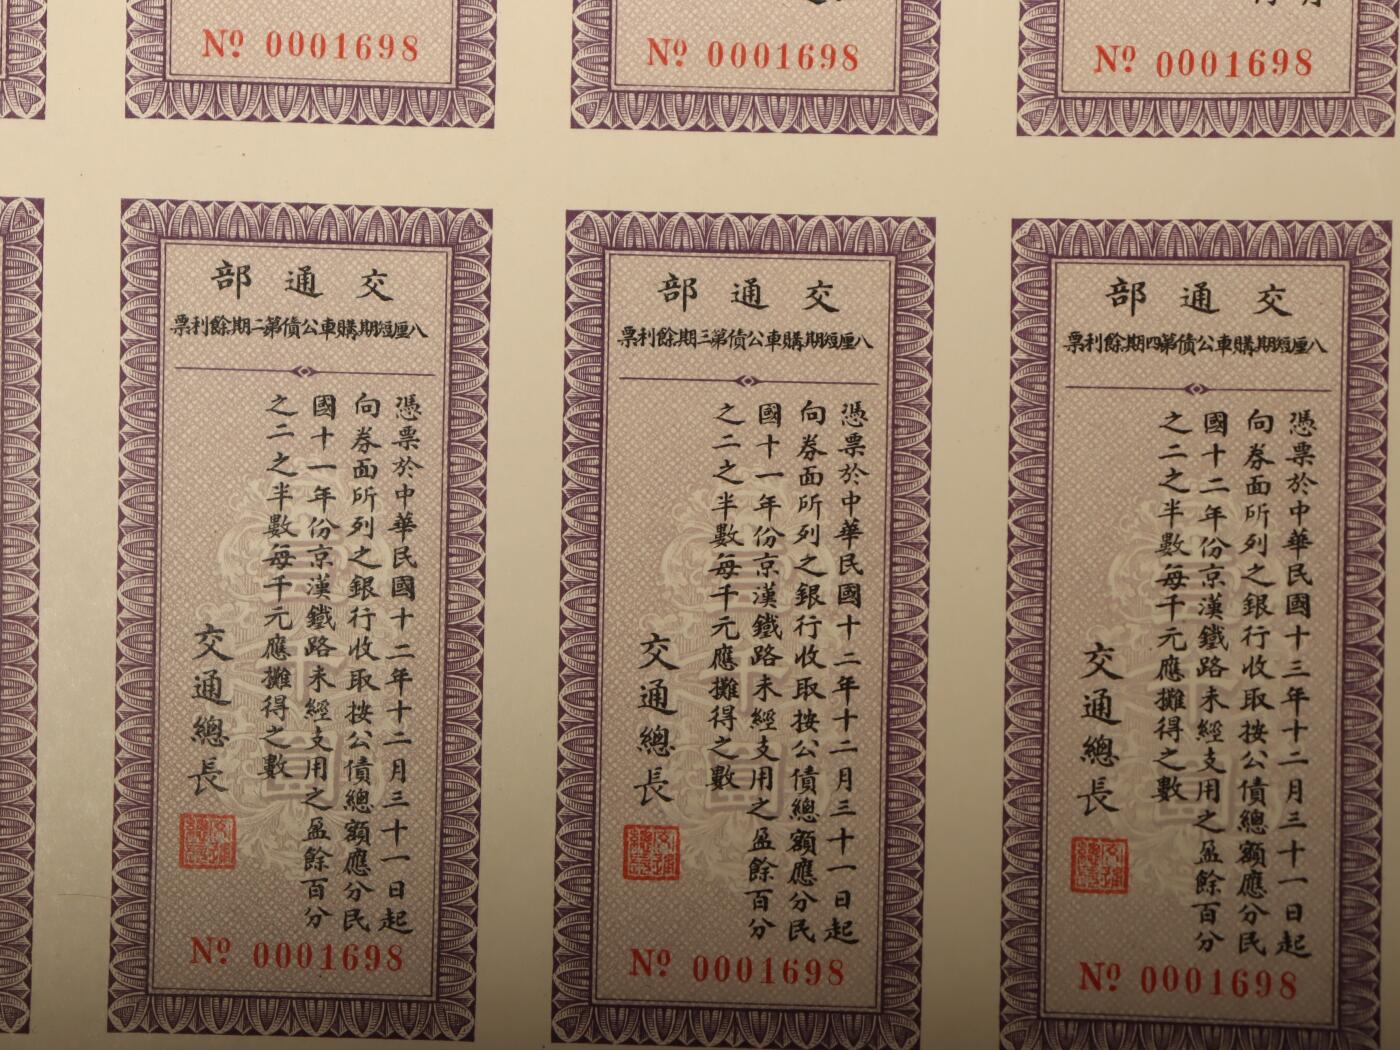 Nº 0001698
Nº 0001698
Nº 0001698
交通部
八厘短期購車公債第二期餘利票
憑票於中華民國十二年十二月三十一日起
向券面所列之銀行收取按公債總額應分民
國十一年份京漢鐵路未經支用之盈餘百分
之二之半數每千元應攤得之數
交通總長
壹千圓
Nº 0001698
交通部
八厘短期購車公債第三期餘利票
憑票於中華民國十二年十二月三十一日起
向券面所列之銀行收取按公債總額應分民
國十一年份京漢鐵路未經支用之盈餘百分
之二之半數每千元應攤得之數
交通總長
壹千圓
Nº 0001698
交通部
八厘短期購車公債第四期餘利票
憑票於中華民國十三年十二月三十一日起
向券面所列之銀行收取按公債總額應分民
國十二年份京漢鐵路未經支用之盈餘百分
之二之半數每千元應攤得之數
交通總長
壹千圓
Nº 0001698